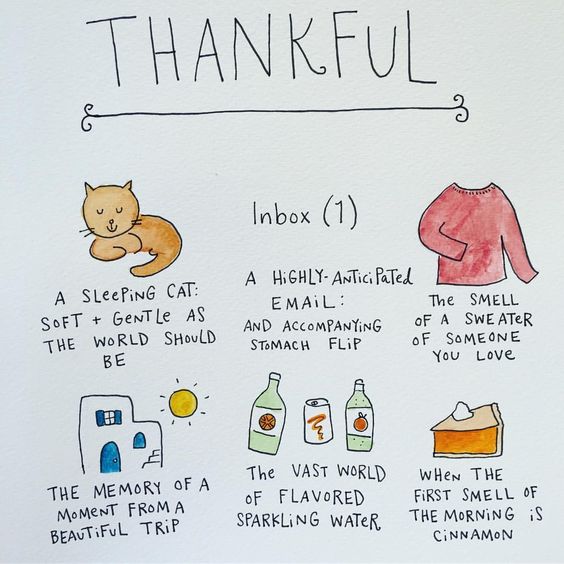 THANKFUL
A SLEEPING CAT:
SOFT + GENTLE AS
THE WORLD SHOULD
BE
Inbox (1)
A HIGHLY-ANTICIPATED
EMAIL:
AND ACCOMPANYING
STOMACH FLIP
THE SMELL
OF A SWEATER
OF SOMEONE
YOU LOVE
THE MEMORY OF A
MOMENT FROM A
BEAUTIFUL TRIP
THE VAST WORLD
OF FLAVORED
SPARKLING WATER
WHEN THE
FIRST SMELL OF
THE MORNING IS
CINNAMON